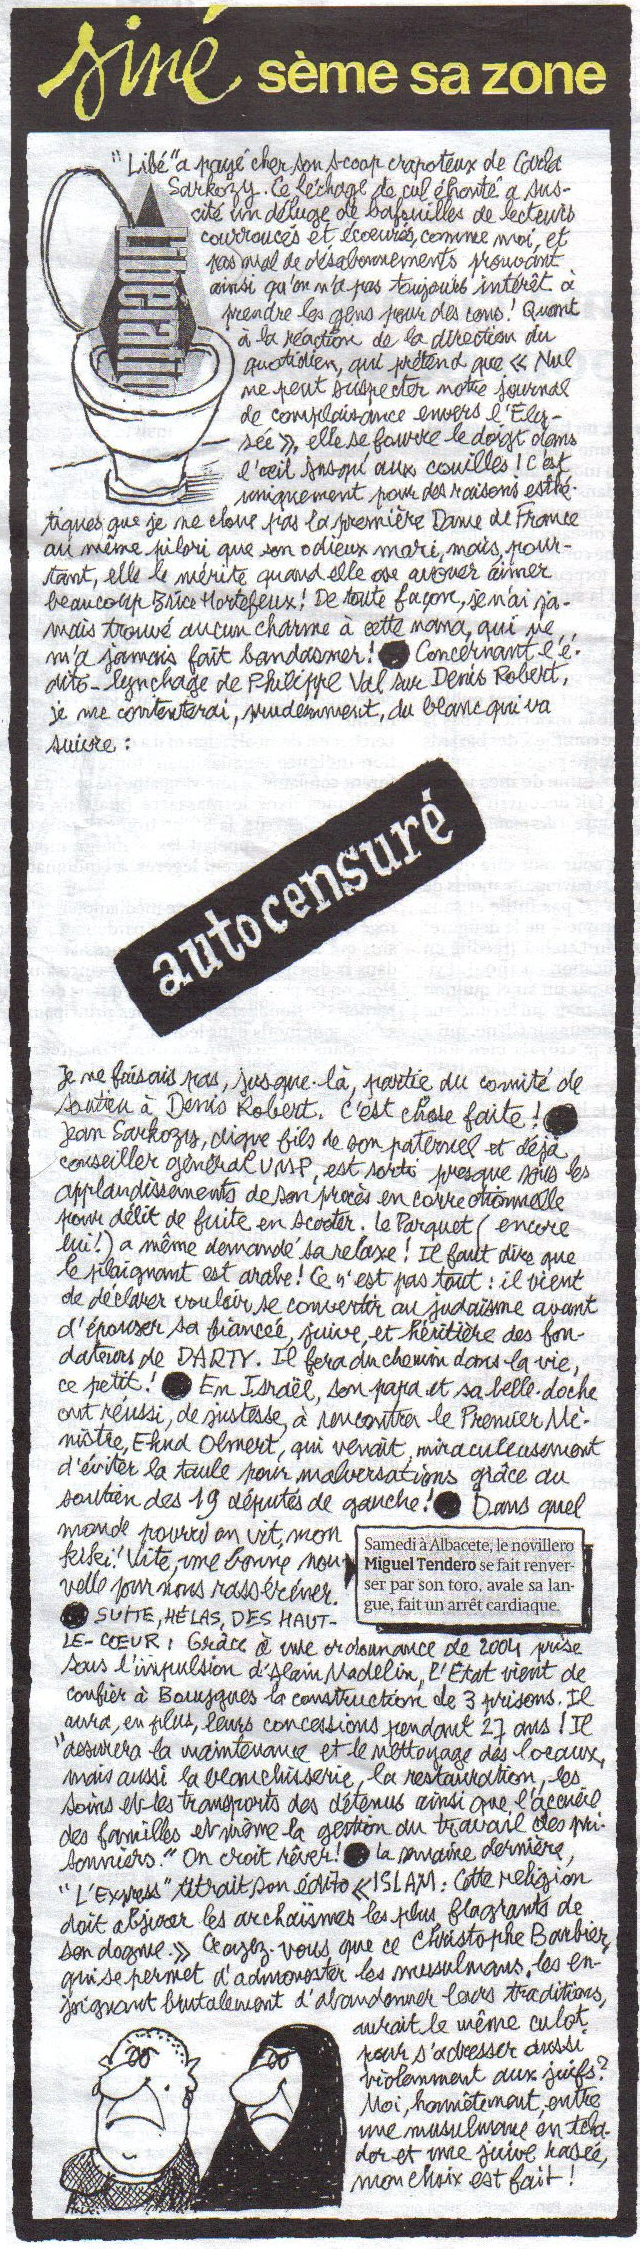 siné sème sa zone
"Libé" a payé cher son scoop crapoteux de Carla
Sarkozy. Ce léchage de cul éhonté a sus-
cité un déluge de bafouilles de lecteurs
courroucés et écoeurés, comme moi, et
pas mal de désabonnements prouvant
ainsi qu'on n'a pas toujours intérêt à
prendre les gens pour des cons! Quant
à la réaction de la direction du
quotidien, qui prétend que « Nul
ne peut suspecter notre journal
de complaisance envers l'Ély-
sée », elle se fourre le doigt dans
l'œil jusqu'aux couilles! C'est
uniquement pour des raisons esthé-
tiques que je ne cloue pas la première Dame de France
au même pilori que son odieux mari, mais, pour-
tant, elle le mérite quand elle ose avouer aimer
beaucoup Brice Hortefeux! De toute façon, je n'ai ja-
mais trouvé aucun charme à cette nana, qui ne
m'a jamais fait bandasmer! Concernant l'é-
dito-lynchage de Philippe Val sur Denis Robert,
je me contenterai, prudemment, du blanc qui va
suivre :
Libération
autocensuré
Je ne faisais pas, jusque-là, partie du comité de
soutien à Denis Robert. C'est chose faite!
Jean Sarkozy, digne fils de son paternel et déjà
conseiller général UMP, est sorti presque sous les
applaudissements de son procès en correctionnelle
pour délit de fuite en scooter. Le Parquet (encore
lui!) a même demandé sa relaxe! Il faut dire que
le plaignant est arabe! Ce n'est pas tout : il vient
de déclarer vouloir se convertir au judaïsme avant
d'épouser sa fiancée, juive, et héritière des fon-
dateurs de DARTY. Il fera du chemin dans la vie,
ce petit! En Israël, son papa et sa belle-doche
ont réussi, de justesse, à rencontrer le Premier Mi-
nistre, Ehud Olmert, qui venait, miraculeusement
d'éviter la taule pour malversations grâce au
soutien des 19 députés de gauche! Dans quel
monde pourri on vit, mon
kiki! Vite, une bonne nou-
velle pour nous rasséréner.
Samedi à Albacete, le novillero
Miguel Tendero se fait renver-
ser par son toro, avale sa lan-
gue, fait un arrêt cardiaque.
SUITE, HÉLAS, DES HAUT-
LE-CŒUR : Grâce à une ordonnance de 2004 prise
sous l'impulsion d'Alain Madelin, l'État vient de
confier à Bouygues la construction de 3 prisons. Il
aura, en plus, leurs concessions pendant 27 ans! Il
"assurera la maintenance et le nettoyage des locaux,
mais aussi la blanchisserie, la restauration, les
soins et les transports des détenus ainsi que l'accueil
des familles et même la gestion du travail des pri-
sonniers." On croit rêver! La semaine dernière,
"L'Express" titrait son édito « ISLAM : Cette religion
doit abjurer les archaïsmes les plus flagrants de
son dogme. » Croyez-vous que ce Christophe Barbier,
qui se permet d'admonester les musulmans, les en-
joignant brutalement d'abandonner leurs traditions,
aurait le même culot
pour s'adresser aussi
violemment aux juifs?
Moi, honnêtement, entre
une musulmane en tcha-
dor et une juive rasée,
mon choix est fait!